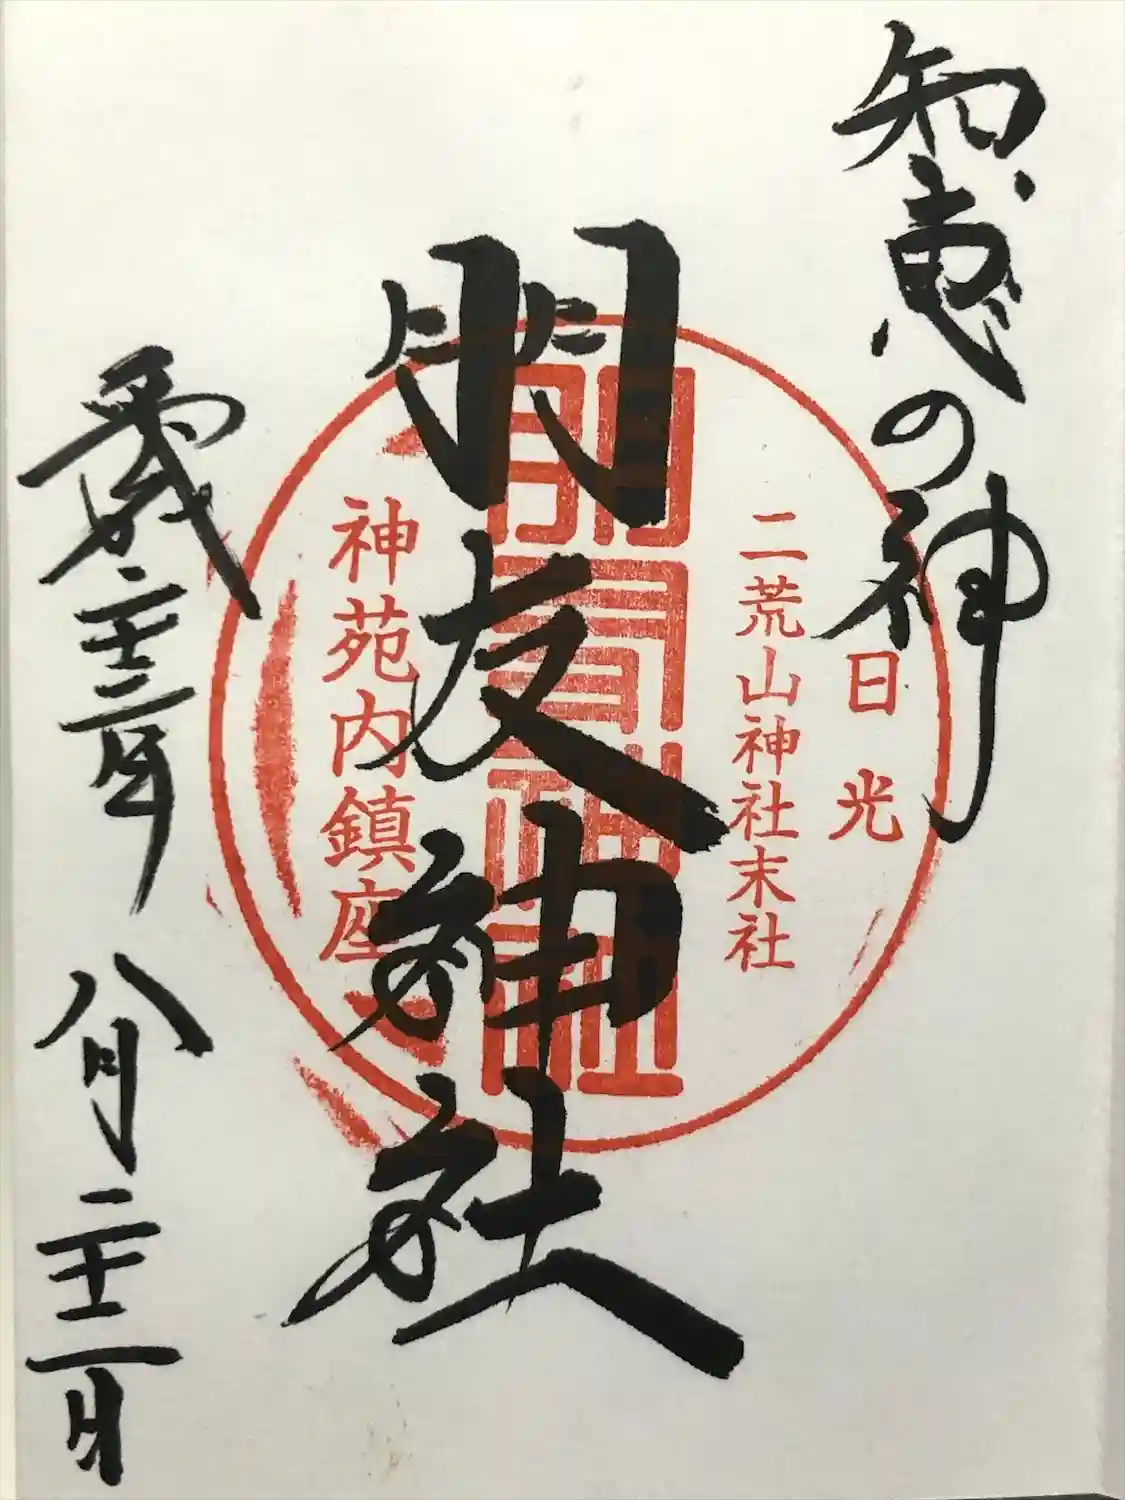 知恵の神
日光
二荒山神社末社
朋友神社
朋友神社
神苑内鎮座
平成二十三年 八月二十二日